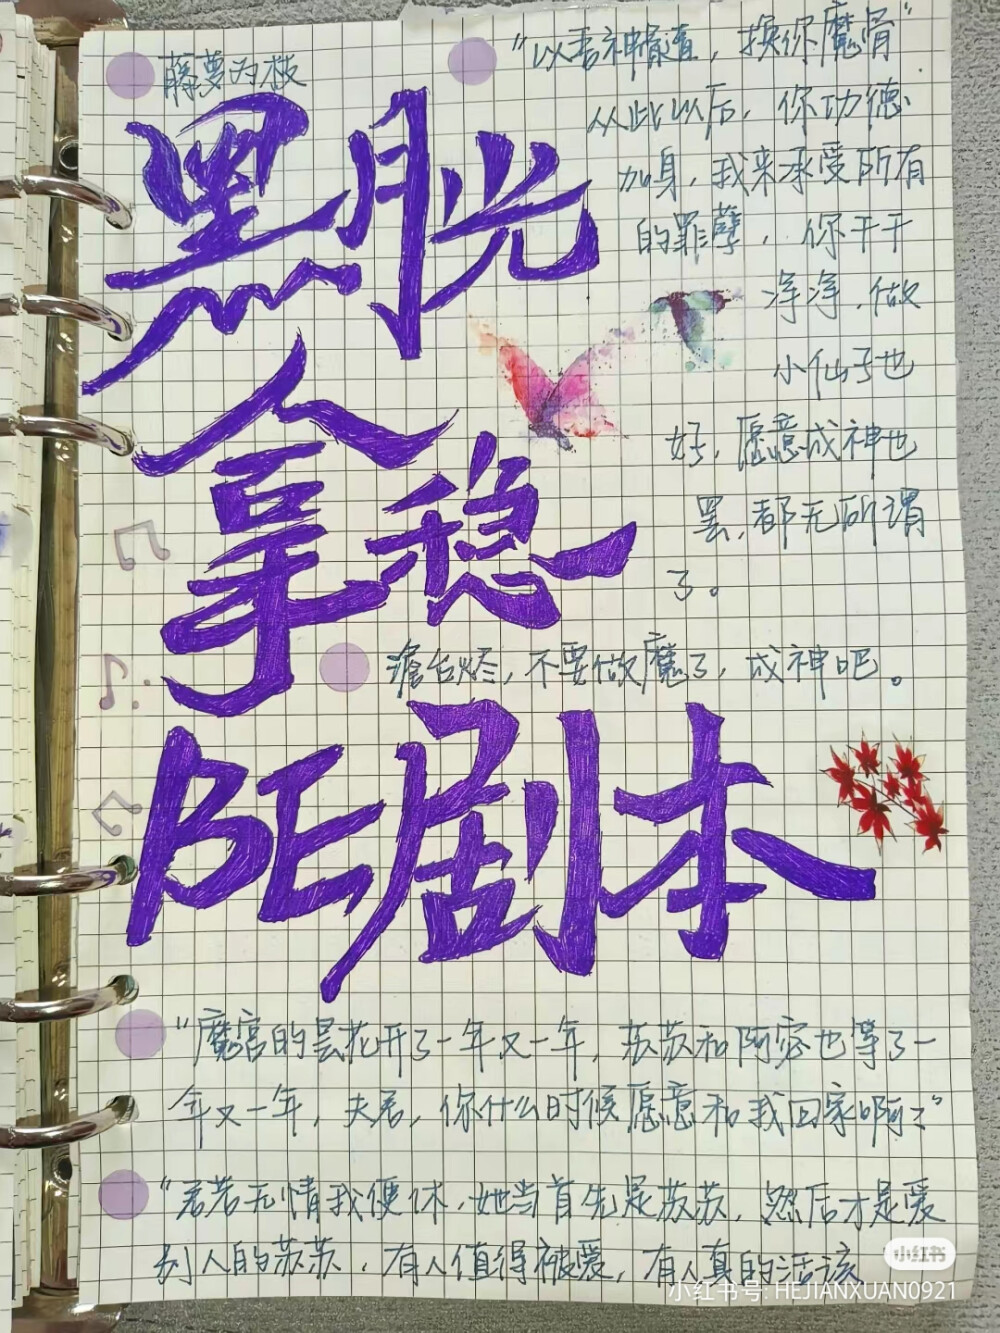 藤萝为枝
黑月光
拿稳
BE剧本
“以吾神髓，换你魔骨”
从此以后，你功德
加身，我来承受所有
的罪孽，你干干
净净，做
小仙子也
好，愿意成神也
罢，都无所谓
了。
澹台烬，不要做魔了，成神吧。
“魔宫的昙花开了一年又一年，苏苏和阿宓也等了一
年又一年，夫君，你什么时候愿意和我回家啊？”
“君若无情我便休，她当首先是苏苏，然后才是爱
别人的苏苏，有人值得被爱，有人真的活该
小红书
小红书号: HEJIANXUAN0921